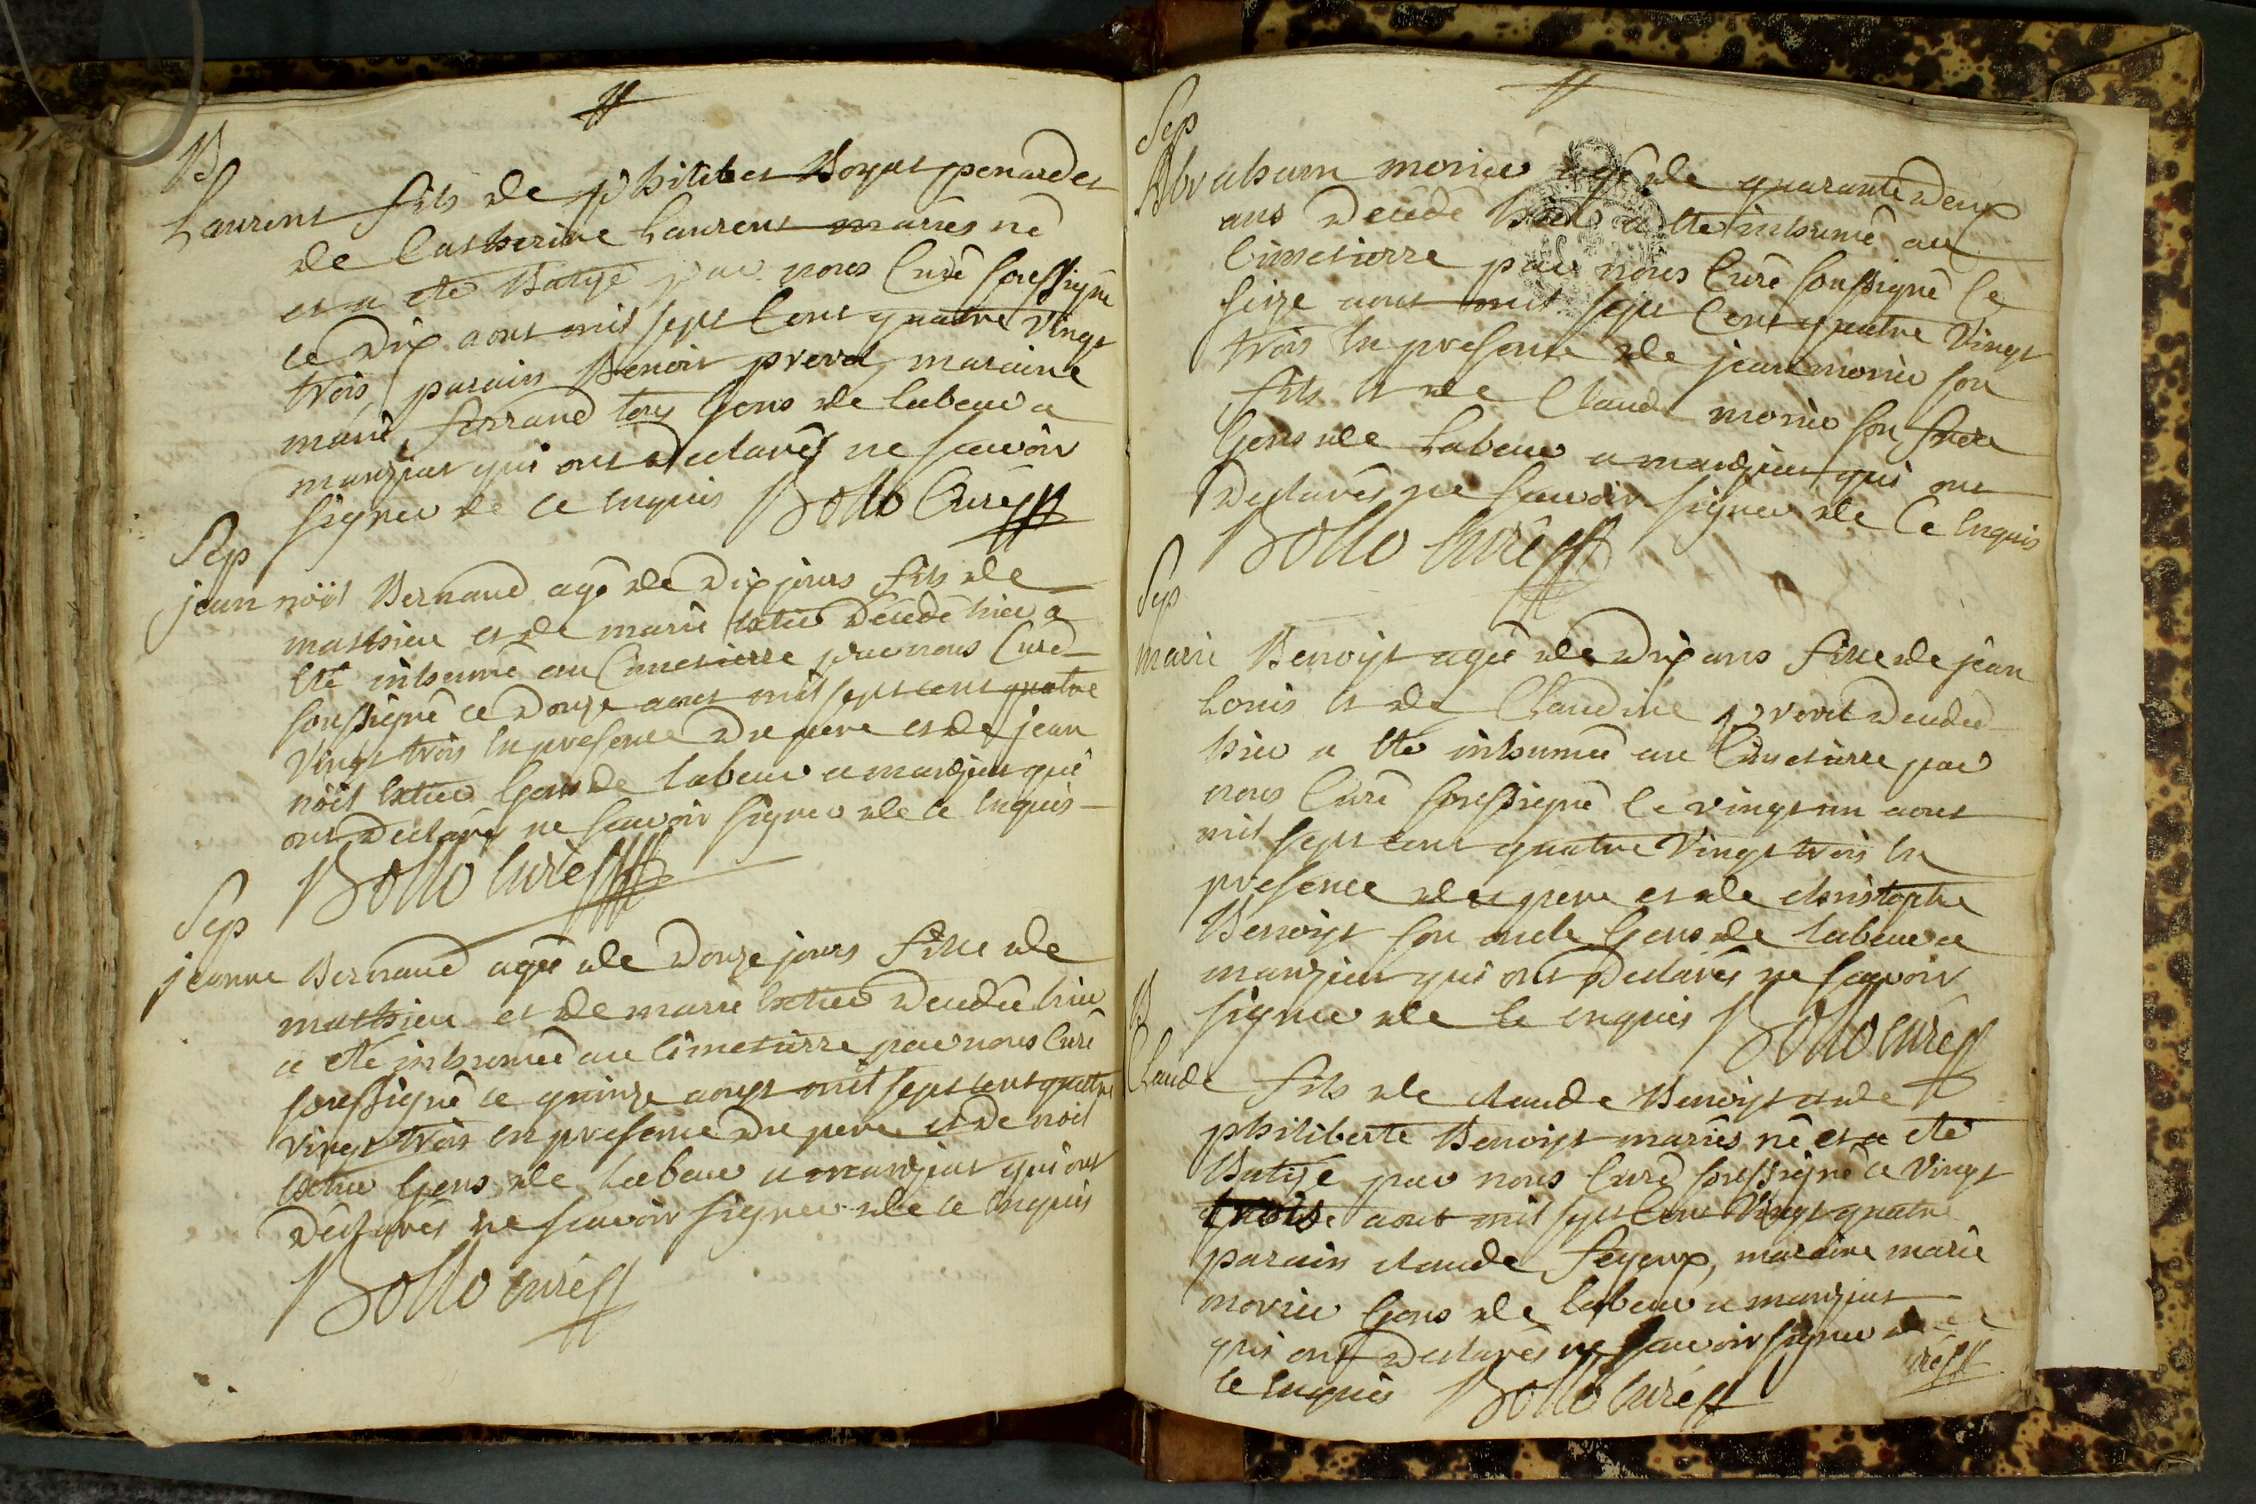 B
Laurent fils de philibet Boyat penard et
de Catherine Laurent mariés né
et a été Batisé par nous Curé soussigné
ce dix aout mil sept Cent quatre vingt
trois parain Benoit prevel, maraine
marie ferrand tous Gens de labeur a
manziat qui ont declarés ne scavoir
signer de ce Enquis Bollo Curé
Sep
jean nöel Bernaud agé de dix jours fils de
mathieu et de marie decedé hier a
Eté inhumé au Cimetierre par nous Curé
soussigné ce douze aout mil sept cent quatre
vingt trois En presence du pere et de jean
nöel Gens de labeur a manziat qui
ont declarés ne scavoir signer de ce Enquis
Bollo Curé
Sep
jeanne Bernaud agée de douze jours fille de
mathieu et de marie decedée hier
a été inhumée au Cimetierre par nous Curé
soussigné ce quinze aoust mil sept cent quatre
vingt trois En presence du pere et de noel
Gens de labeur a manziat qui ont
declarés ne scavoir signer de ce Enquis
Bollo Curé
Sep
Abraham morier agé de quarante deux
ans decedé hier a Eté inhumé au
Cimetierre par nous Curé soussigné le
seize aout mil sept Cent quatre vingt
trois En presence de jean morier son
fils et de Claude morier son frere
Gens de labeur a manziat qui ont
declarés ne scavoir signer de Ce Enquis
Bollo Curé
Sep
marie Benoist agée de dix ans fille de jean
Louis et de Claudine prevel decedée
hier a Eté inhumée au Cimetierre par
nous Curé soussigné le vingt un aout
mil sept cent quatre vingt trois En
presence du pere et de christophe
Benoist son oncle Gens de labeur a
manziat qui ont declarés ne scavoir
signer de ce enquis Bollo Curé
B
Claude fils de claude Benoist et de
philiberte Benoist mariés né et a eté
Batisé par nous Curé soussigné ce vingt
trois aout mil sept Cent vingt quatre
parain claude feyeux, maraine marie
morier Gens de labeur a manziat
qui ont declarés ne scavoir signer de
ce Enquis Bollo Curé